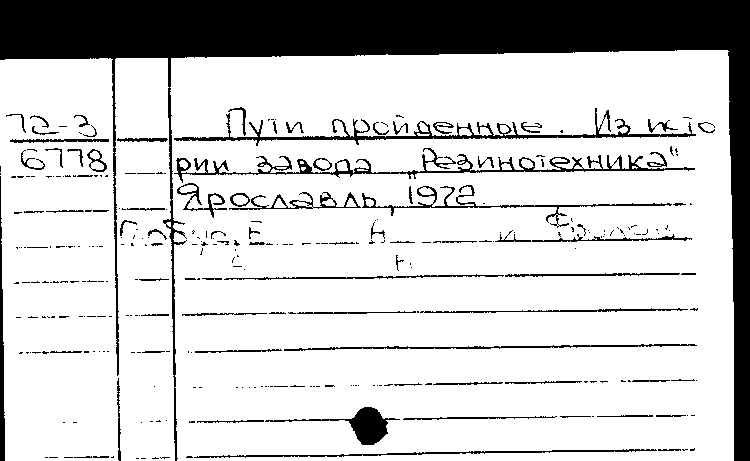 72-3
Пути пройденные. Из исто
6778
рии завода „Резинотехника“
Ярославль, 1972
Е Н и